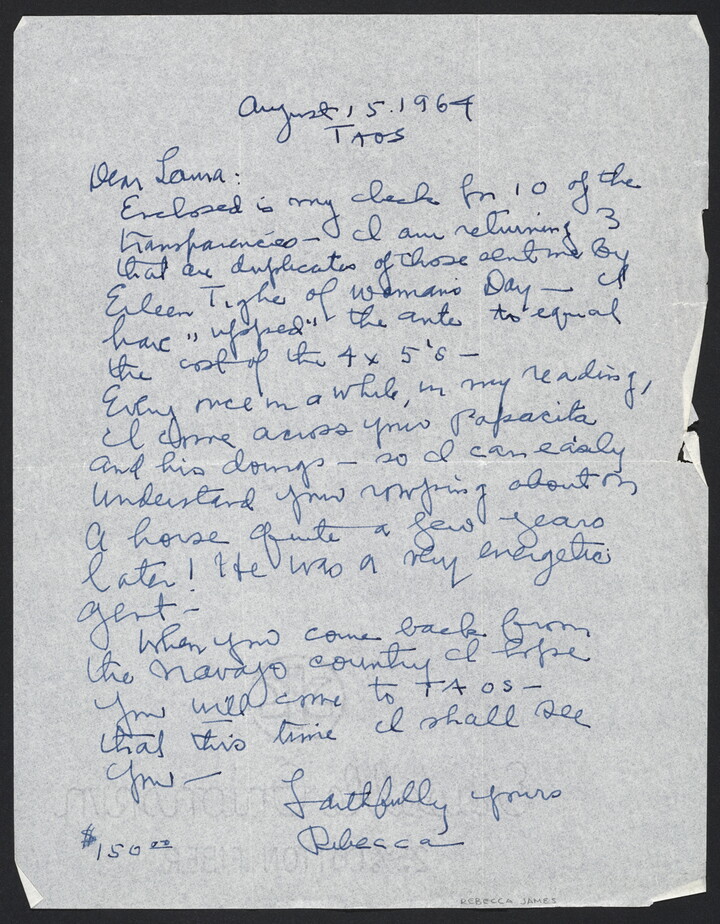 August 15. 1964
TAOS
Dear Laura:
Enclosed is my check for 10 of the
transparencies – I am returning 3
that are duplicates of those sent me by
Eileen Tighe of Woman's Day – I
have "upped" the ante to equal
the cost of the 4 x 5's –
Every once in a while, in my reading,
I come across your Papacita
and his doings – so I can easily
understand your romping about on
a horse quite a few years
later! He was a very energetic
gent –
When you come back from
the Navajo country I hope
you will come to TAOS –
that this time I shall see
you –
Faithfully yours
Rebecca
$150.00
REBECCA JAMES